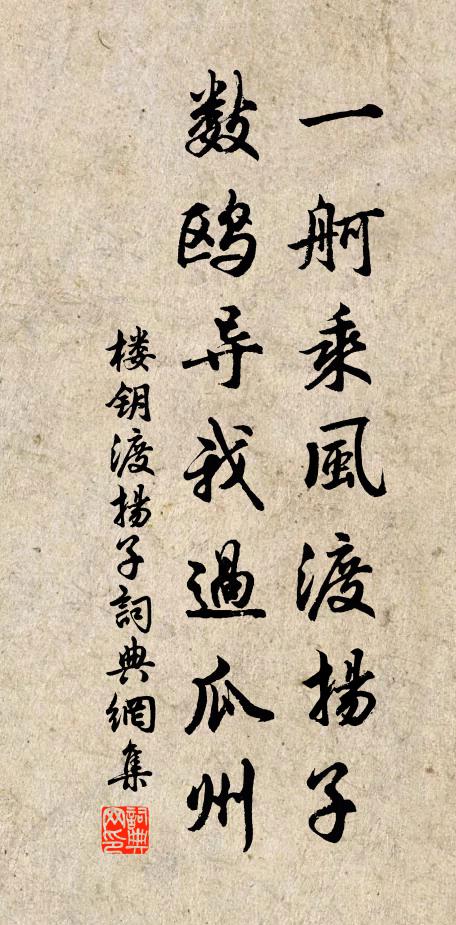 一舸乘風渡揚子
数鸥导我過瓜州
楼钥渡揚子詞典網集
詞典
网印